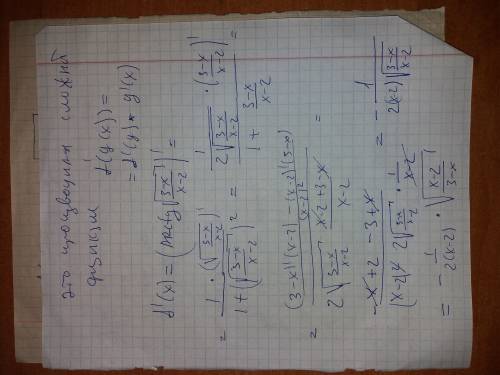 это производная сложной
функции f(g(x)) =
= f'(g) * g'(x)
f'(x) = (arctg √((3-x)/(x-2)))' =
= (1 · (√((3-x)/(x-2)))') / (1 + (√((3-x)/(x-2)))²) = (1/(2√((3-x)/(x-2))) · ((3-x)/(x-2))') / (1 + (3-x)/(x-2)) =
= (((3-x)'(x-2) - (x-2)'(3-x)) / (x-2)²) / (2√((3-x)/(x-2)) · (x-2+3-x)/(x-2)) =
(-x+2-3+x) / ((x-2)² 2√((3-x)/(x-2)) · 1/(x-2)) = - 1/(2(x-2)√((3-x)/(x-2)))
= - 1/(2(x-2)) · √((x-2)/(3-x))